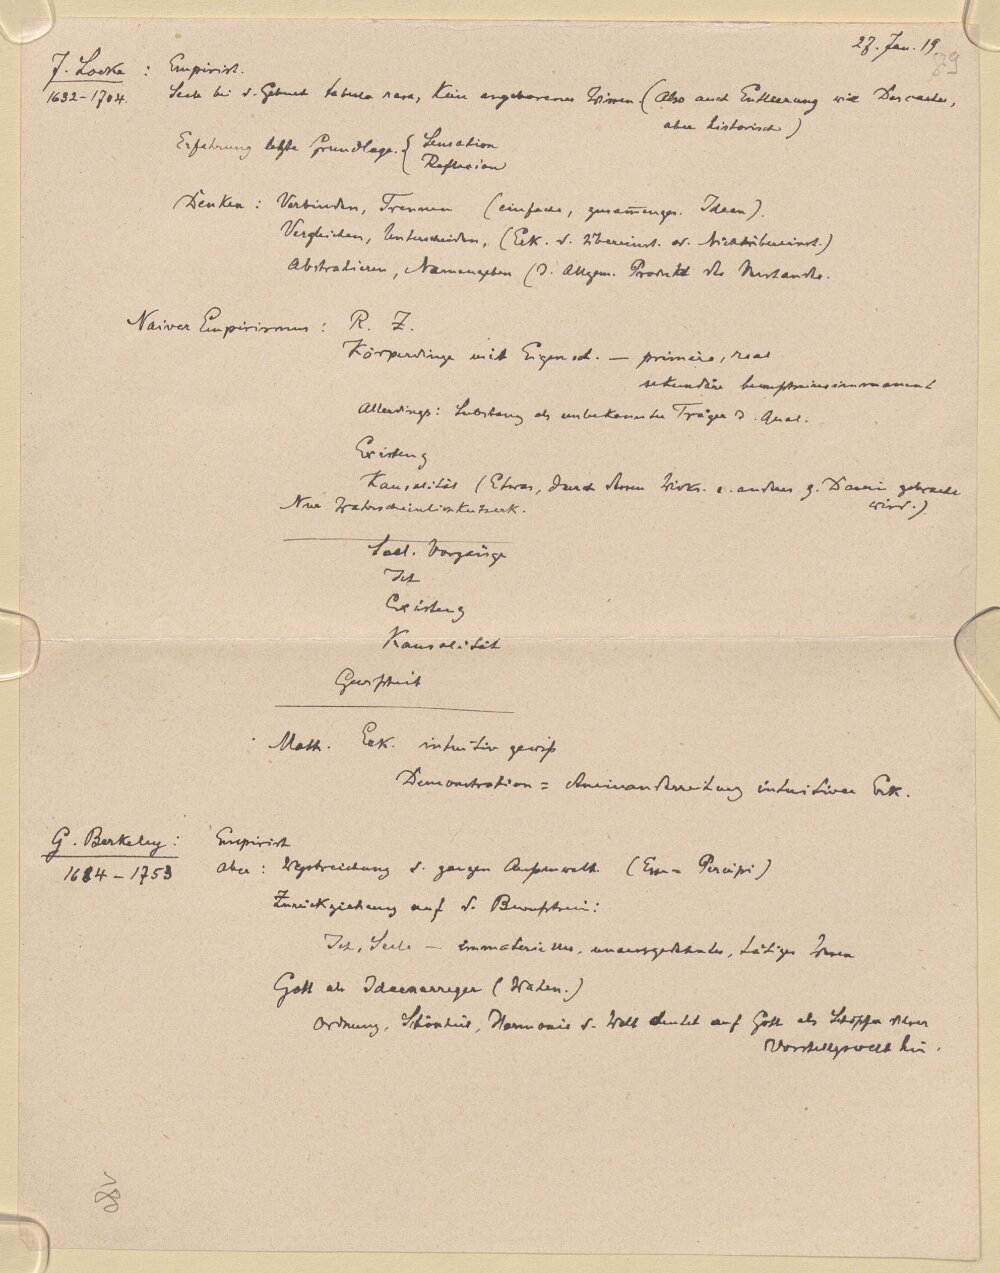 27. Jan. 19
89
J. Locke : Empirist.
1632–1704. Seele bei d. Geburt tabula rasa, Kein angeborenes Wissen (Also auch Entleerung wie Descartes,
aber historisch)
Erfahrung letzte Grundlage. { Sensation
Reflexion
Denken : Verbinden, Trennen (einfache, zusammenges. Ideen).
Vergleichen, Unterscheiden, (Erk. d. Übereinst. od. Nichtübereinst.)
Abstrahieren, Namengeben (D. Allgem. Produkt des Verstandes.
Naiver Empirismus : R. Z.
Körperdinge mit Eigensch. — primäre, real
sekundäre bewußtseinsimmanent
Allerdings: Substanz als unbekannter Träger d. Qual.
Existenz
Kausalität (Etwas, durch dessen Wirk. e. anderes z. Dasein gebracht
wird.)
Nur Wahrscheinlichkeitserk.
Seel. Vorgänge
Ich
Existenz
Kausalität
Gewißheit
Math. Erk. intuitiv gewiß
Demonstration = Aneinanderreihung intuitiver Erk.
G. Berkeley : Empirist
1684–1753 aber : Wegstreichung d. ganzen Außenwelt. (Esse = Percipi)
Zurückziehung auf d. Bewußtsein:
Ich, Seele — immaterielles, unausgedehntes, tätiges Wesen
Gott als Ideenerreger
Ordnung, Schönheit, Harmonie d. Welt deutet auf Gott als Schöpfer dieser
Vorstellgswelt hin.